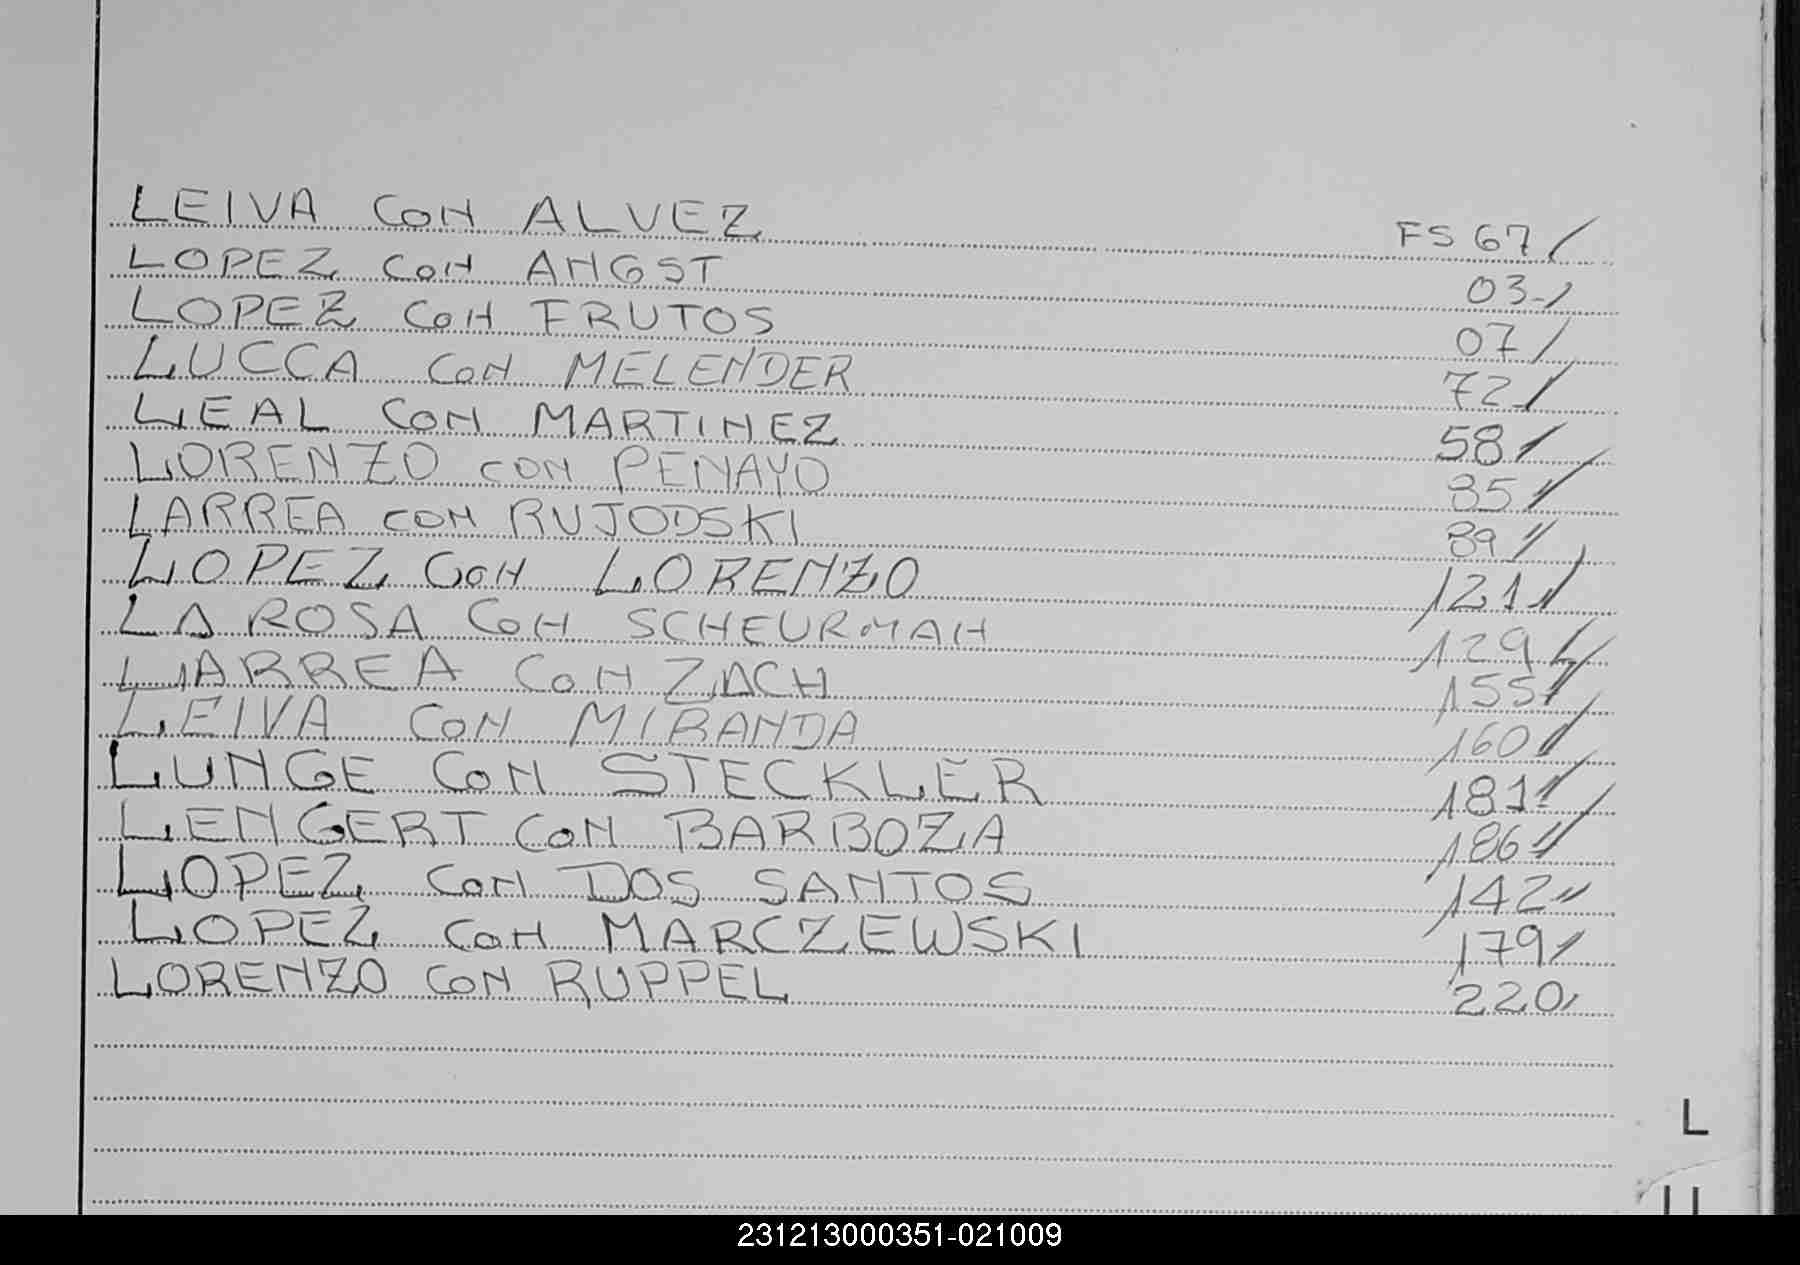 LEIVA CON ALVEZ FS 67/
LOPEZ CON ANGST 03-/
LOPEZ CON FRUTOS 07/
LUCCA CON MELENDER 72/
LEAL CON MARTINEZ 58/
LORENZO CON PENAYO 85/
LARREA CON RUJODSKI 89/
LOPEZ CON LORENZO 121/
LA ROSA CON SCHEURMAN 129/
LARREA CON ZACH 155/
LEIVA CON MIRANDA 160/
LUNGE CON STECKLER 181/
LENGERT CON BARBOZA 186/
LOPEZ CON DOS SANTOS 142/
LOPEZ CON MARCZEWSKI 179/
LORENZO CON RUPPEL 220/
L
231213000351-021009